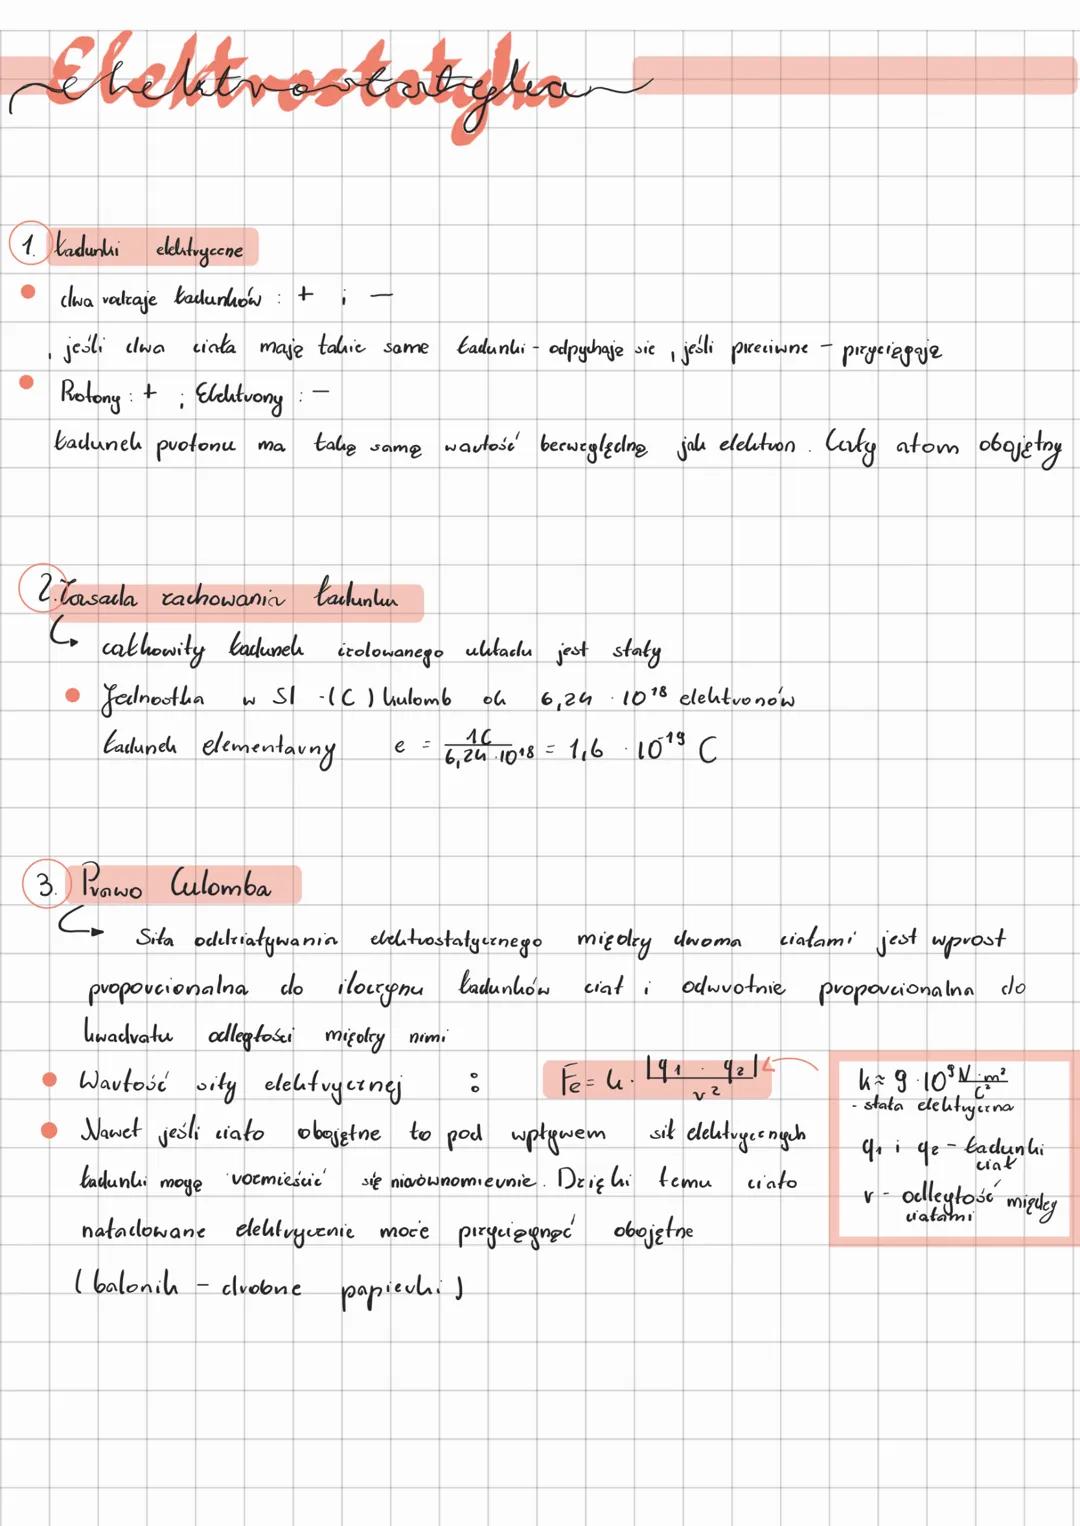 Elektrostatyka
1. Ładunki elektryczne
dwa rodzaje ładunków : + i −
, jeśli dwa ciała mają takie same ładunki - odpychają się , jeśli przeciwne - przyciągają
Protony : + ; Elektrony : −
Ładunek protonu ma taką samą wartość bezwzględną jak elektron. Cały atom obojętny
2. Zasada zachowania ładunku
↳ całkowity ładunek izolowanego układu jest stały
Jednostka w SI - (C) kulomb ok 6,24 · 10¹⁸ elektronów
Ładunek elementarny e = 1C / 6,24 · 10¹⁸ = 1,6 · 10⁻¹⁹ C
3. Prawo Culomba
↳ Siła oddziaływania elektrostatycznego między dwoma ciałami jest wprost
proporcionalna do iloczynu ładunków ciał i odwrotnie proporcionalna do
kwadratu odległości między nimi
Wartość siły elektrycznej : Fe = k · |q₁ · q₂| / r²
Nawet jeśli ciało obojętne to pod wpływem sił elektrycznych
ładunki mogą rozmieścić się nierównomiernie. Dzięki temu ciało
naładowane elektrycznie może przyciągnąć obojętne
(balonik - drobne papierki)
k ≈ 9 · 10⁹ N · m² / C²
- stała elektryczna
q₁ i q₂ - ładunki
ciał
r - odległość między
ciałami